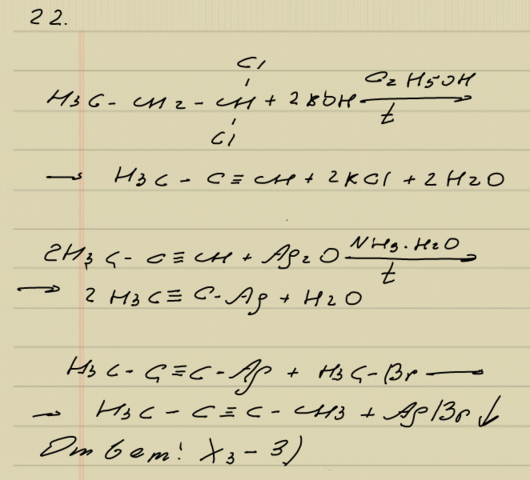 22.
Cl
H3C - CH2 - CH + 2KOH C2H5OH
Cl t
→ H3C - C≡CH + 2KCl + 2H2O
2H3C - C≡CH + Ag2O NH3·H2O →
t
→ 2H3C≡C-Ag + H2O
H3C - C≡C-Ag + H3C-Br →
→ H3C - C≡C - CH3 + AgBr↓
Ответ: X3 - 3)